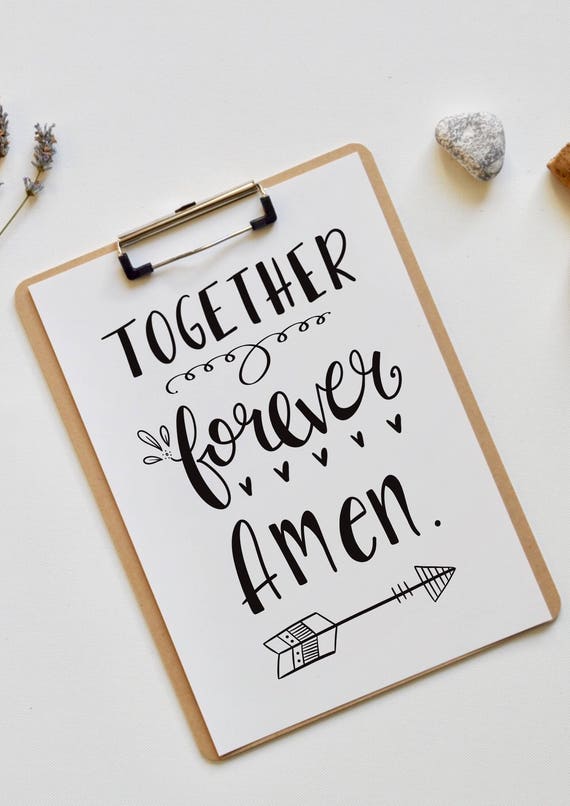 TOGETHER
forever
Amen.